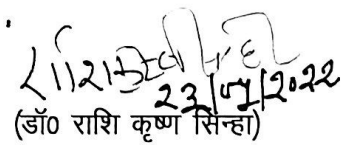 23/07/2022
(डॉ0 राशि कृष्ण सिन्हा)